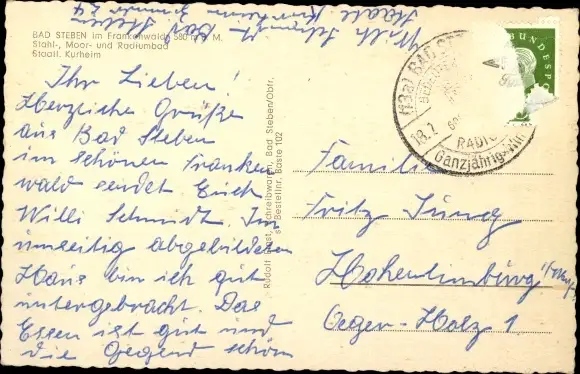 BAD STEBEN im Frankenwald 580 m ü. M.
Stahl-, Moor- und Radiumbad
Staatl. Kurheim
Ihr Lieben!
Herzliche Grüße
aus Bad Steben
im schönen Franken
wald sendet Euch
Willi Schmidt. Im
umseitig abgebildeten
Haus bin ich gut
untergebracht. Das
Essen ist gut und
die Gegend schön
Willi Schmidt Bad
Steben
Staatl. Kurheim Zimmer 24
Bad Steben/Obfr.
Bestellnr. Baste 102
(13a) BAD STE
18.7
RADIU
Ganzjährige
BUNDESP
Familie
Fritz Jung
Hohenlimburg
Oeger-Holz 1